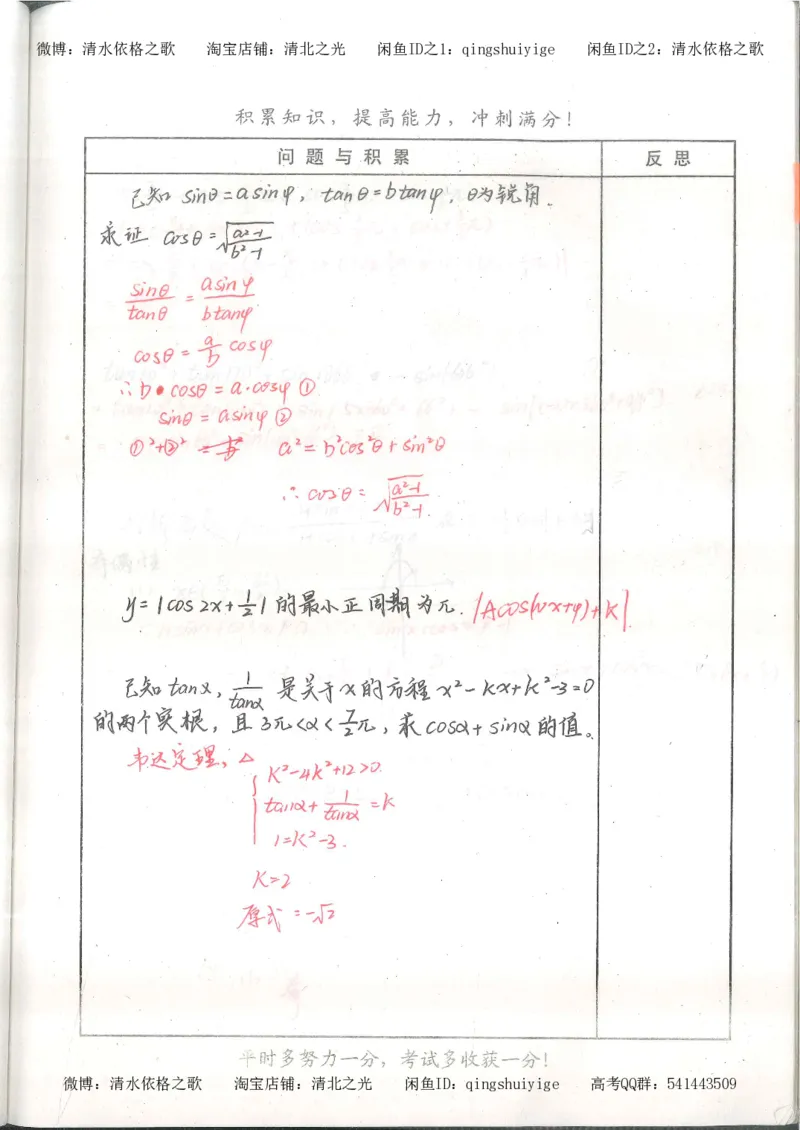 微博：清水依格之歌 淘宝店铺：清北之光 闲鱼ID之1：qingshuiyige 闲鱼ID之2：清水依格之歌
积累知识，提高能力，冲刺满分！
问题与积累 反思
已知 sinθ=asinφ，tanθ=btanφ，θ为锐角.
求证 cosθ=√((a²-1)/(b²-1))
sinθ/tanθ = asinφ/btanφ
cosθ = a/b cosφ
∴b•cosθ = a·cosφ ①
sinθ = asinφ ②
①²+②² a²=b²cos²θ+sin²θ
∴ cosθ = √((a²-1)/(b²-1)).
奇偶性
y=|cos2x+1/2|的最小正周期为π. |Acos(ωx+φ)+K|
已知tanα，1/tanα 是关于x的方程 x²-kx+k²-3=0
的两个实根，且3π<α<7/2π，求cosα+sinα的值。
韦达定理，△
{ K²-4K²+12≥0.
tanα+1/tanα=K
1=K²-3.
K=2
原式=-√2
平时多努力一分，考试多收获一分！
微博：清水依格之歌 淘宝店铺：清北之光 闲鱼ID：qingshuiyige 高考QQ群：541443509